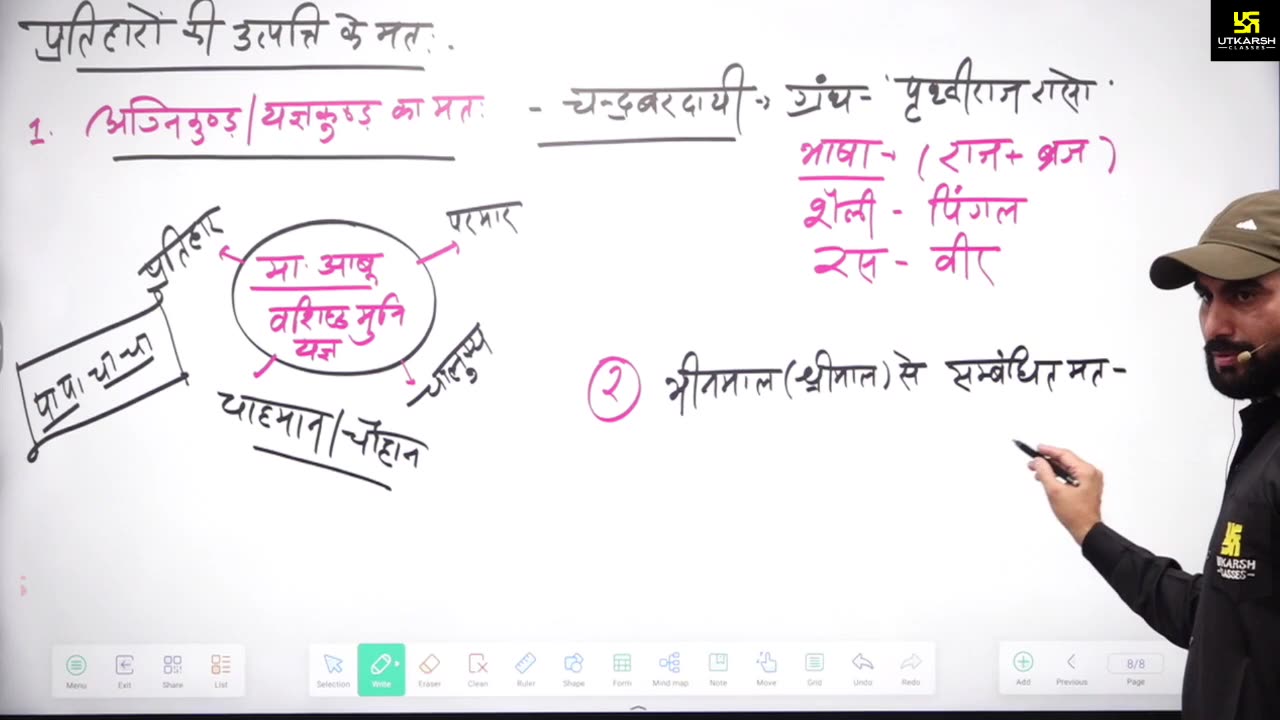 प्रतिहारों की उत्पत्ति के मत:
1. अग्निकुण्ड/यज्ञकुण्ड का मत: - चन्द्रबरदायी → ग्रंथ- 'पृथ्वीराज रासो'
भाषा → (राज + ब्रज)
शैली - पिंगल
रस - वीर
प्रतिहार
परमार
मा. आबू
वशिष्ठ मुनि
यज्ञ
चालुक्य
चाहमान/चौहान
पा पा चा चा
2 भीनमाल (श्रीमाल) से सम्बंधित मत-
UTKARSH
CLASSES
UTKARSH
CLASSES
Menu Exit Share List
Selection Write Eraser Clean Ruler Shape Form Mind map Note Move Grid Undo Redo
Add Previous 8/8 Page